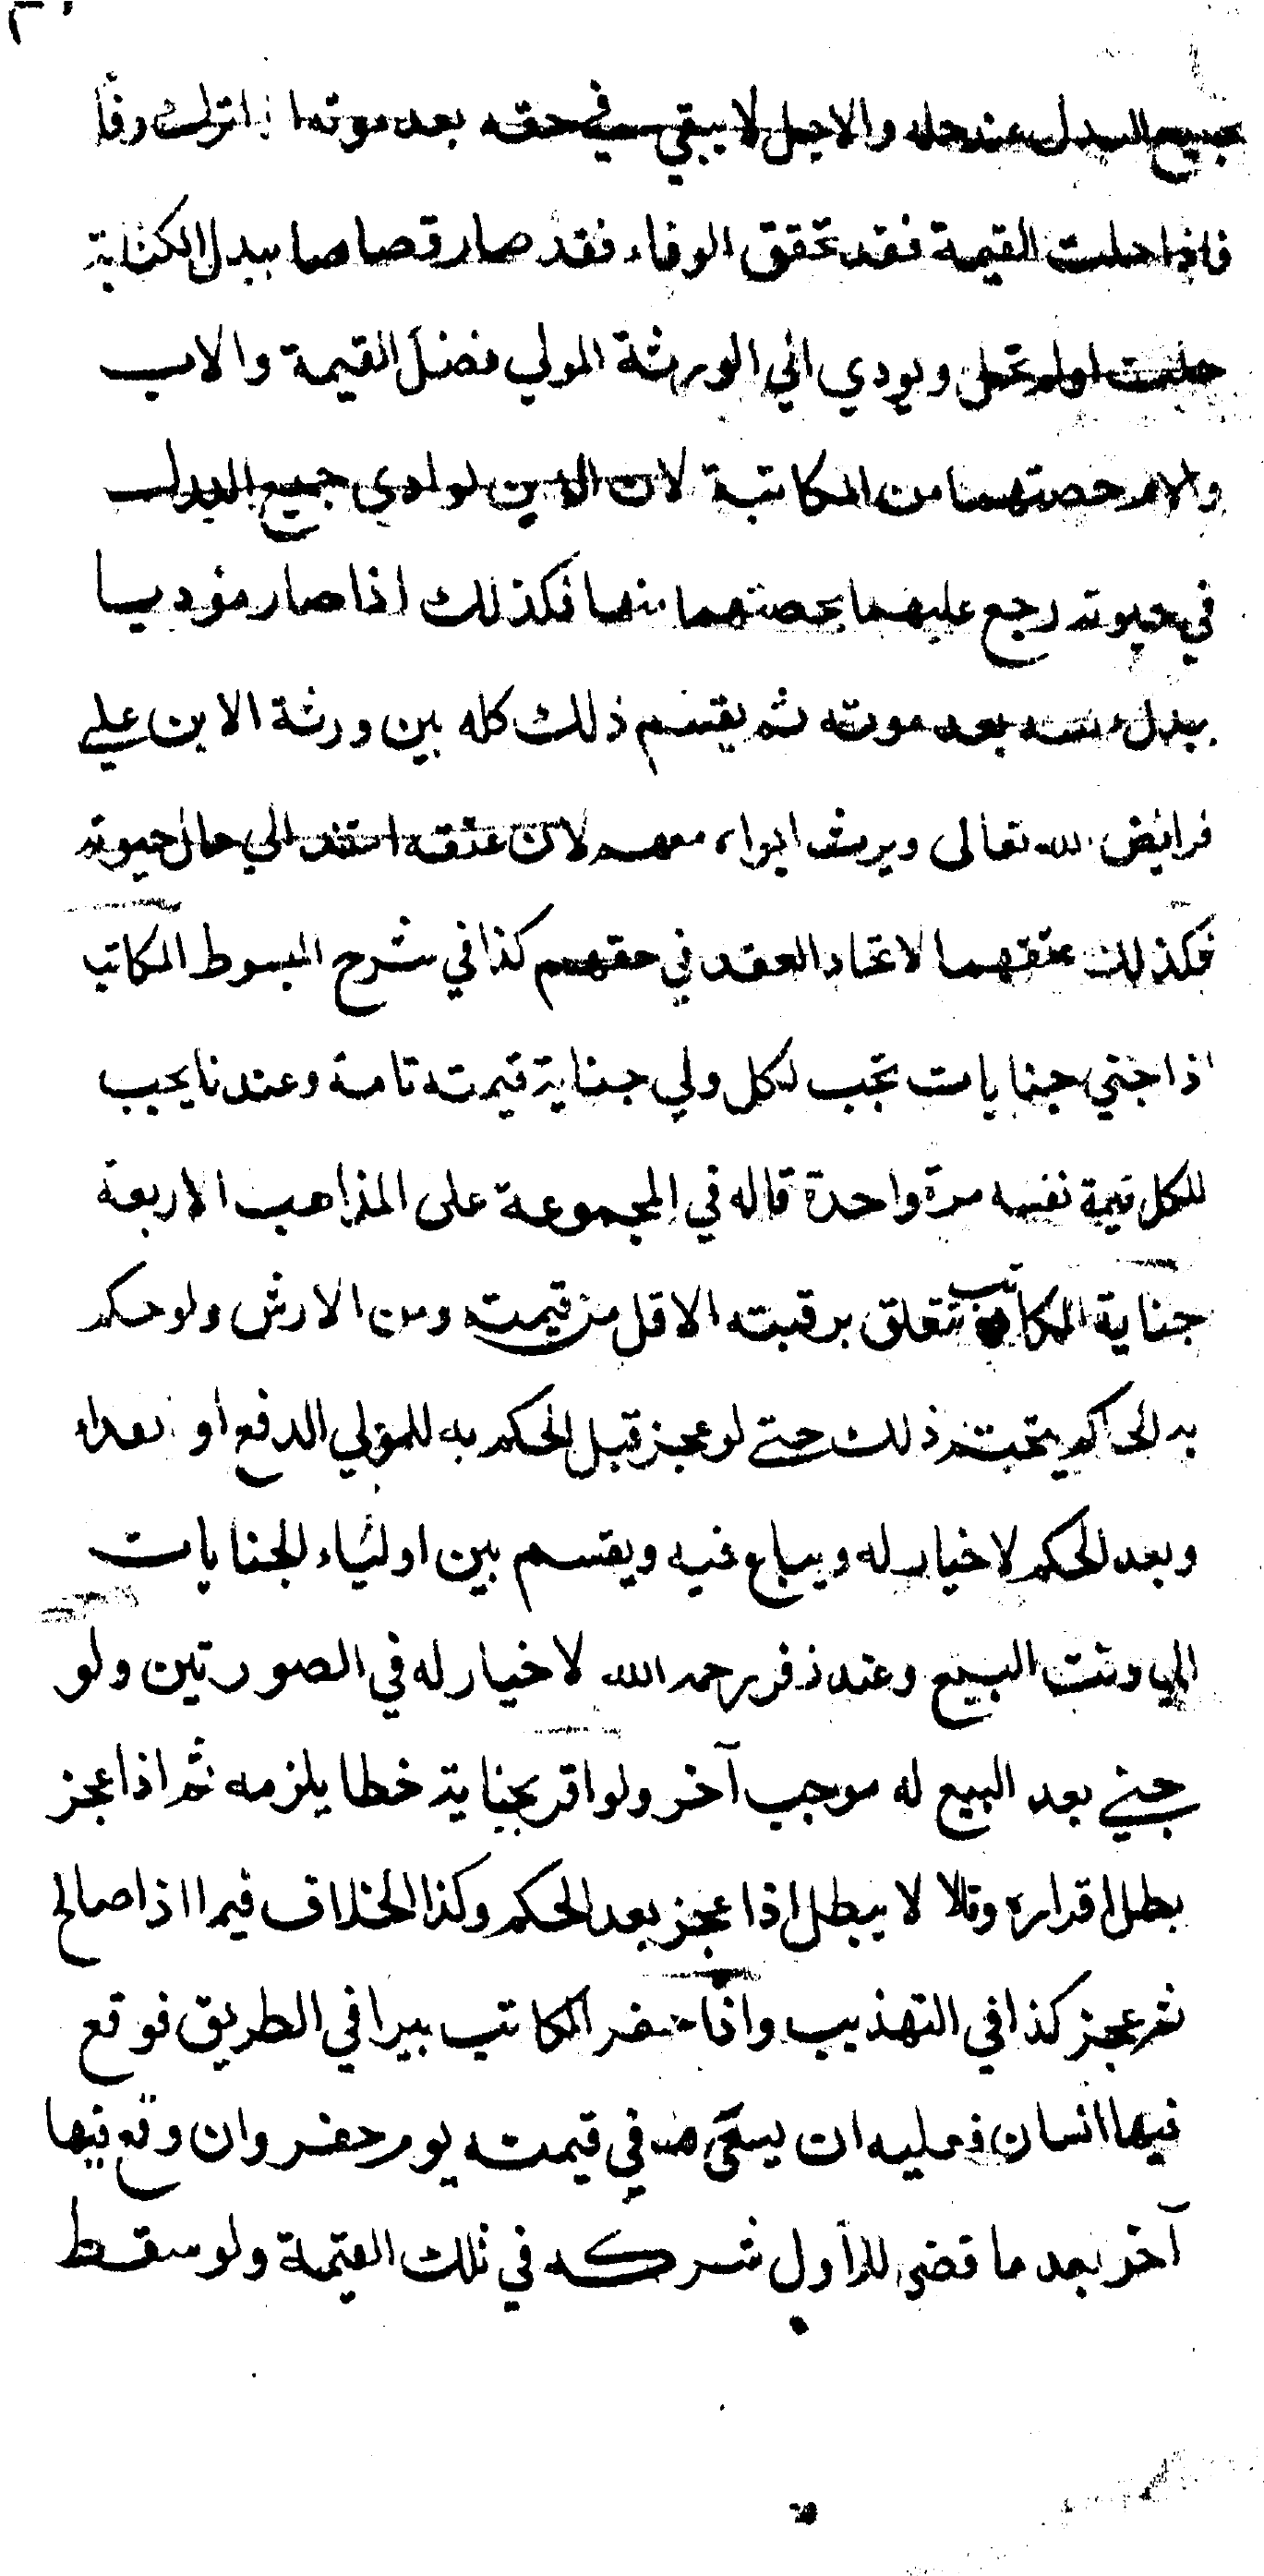 جميع البدل عند حله والاجل لا يبقي في حقه بعد موته اذا ترك وفا
فاذا حلت القيمة فقد تحقق الوفاء فقد صار قصاصا ببدل الكتابة
حلت اولم تحل ويودي الي الورثة المولي فضل القيمة والاب
والام حصتهما من المكاتبة لان الابن لو ادي جميع البدل
في حيوته رجع عليهما بحصتهما منها فكذلك اذا صار مؤديا
ببدل نفسه بعد موته ثم يقسم ذلك كله بين ورثة الابن علي
فرائض الله تعالى ويرث ابواه معهم لان عتقه استند الي حال حيوته
فكذلك عتقهما لاتحاد العقد في حقهم كذا في شرح المبسوط المكاتب
اذا جني جنايات تجب لكل ولي جناية قيمته تامة وعندنا يجب
للكل قيمة نفسه مرة واحدة قاله في المجموعة على المذاهب الاربعة
جناية المكاتب تتعلق برقبته الاقل من قيمته ومن الارش ولو حكم
به الحاكم يتحتم ذلك حتي لو عجز قبل الحكم به للمولي الدفع او الفداء
وبعد الحكم لا خيار له ويباع فيه ويقسم بين اولياء الجنايات
الي وقت البيع وعند زفر رحمه الله لا خيار له في الصورتين ولو
جني بعد البيع له موجب آخر ولو اقر بجناية خطا يلزمه ثم اذا عجز
بطل اقراره وقالا لا يبطل اذا عجز بعد الحكم وكذا الخلاف فيما اذا صالح
ثم عجز كذا في التهذيب واذا حفر المكاتب بيرا في الطريق فوقع
فيها انسان فعليه ان يسعى في قيمته يوم حفر وان وقع فيها
آخر بعد ما قضي للأول شركه في تلك القيمة ولو سقط